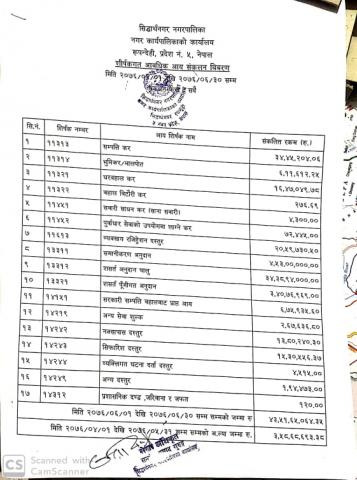 सिद्धार्थनगर नगरपालिका
नगर कार्यपालिकाको कार्यालय
रुपन्देही, प्रदेश नं. ५, नेपाल
शीर्षकगत आवधिक आय संकलन विवरण
मिति २०७६/०६/०१ देखि २०७६/०६/३० सम्म
सि.नं. शिर्षक नम्बर आय शिर्षक नाम संकलित रकम (रु.)
१ ११३१३ सम्पति कर ३,४४,२०४.०६
२ ११३१४ भुमिकर/मालपोत ६,११,६१२.२५
३ ११३२१ घरवहाल कर १६,४७,०४९.७८
४ ११३२२ वहाल विटौरी कर २७६.६९
५ ११४५१ सवारी साधन कर (साना सवारी) ४,३००.००
६ ११४५२ पुर्वाधार सेवाको उपयोगमा लाग्ने कर ७२,४४५.००
७ ११६१३ व्यवसाय रजिष्ट्रेशन दस्तुर २०,५९,७३०.५०
८ १३३११ समानीकरण अनुदान ४,५३,००,०००.००
९ १३३१२ शसर्त अनुदान चालु ३४,३८,९४,०००.००
१० १३३२१ शसर्त पूँजीगत अनुदान ३,४०,७६,९६९.००
११ १४१५१ सरकारी सम्पति वहालबाट प्राप्त आय ६,७५,९३५.६०
१२ १४२१९ अन्य सेवा शुल्क २,६७,६३६.८०
१३ १४२४२ नक्सापास दस्तुर १३,८०,२४०.३०
१४ १४२४३ सिफारिश दस्तुर १५,३०,५५६.३७
१५ १४२४४ व्यक्तिगत घटना दर्ता दस्तुर ४,५१५.००
१६ १४२४९ अन्य दस्तुर १,९४,४७३.००
१७ १४३१२ प्रशासनिक दण्ड ,जरिवाना र जफत १२०.००
मिति २०७६/०६/०१ देखि २०७६/०६/३० सम्म सम्मको जम्मा रु ४३,५१,६५,०६४.३५
मिति २०७६/०४/०१ देखि २०७६/०५/३१ सम्म सम्मको अ.ल्या जम्मा रु ३,५८,६८,६९३.३८
CS Scanned with
CamScanner